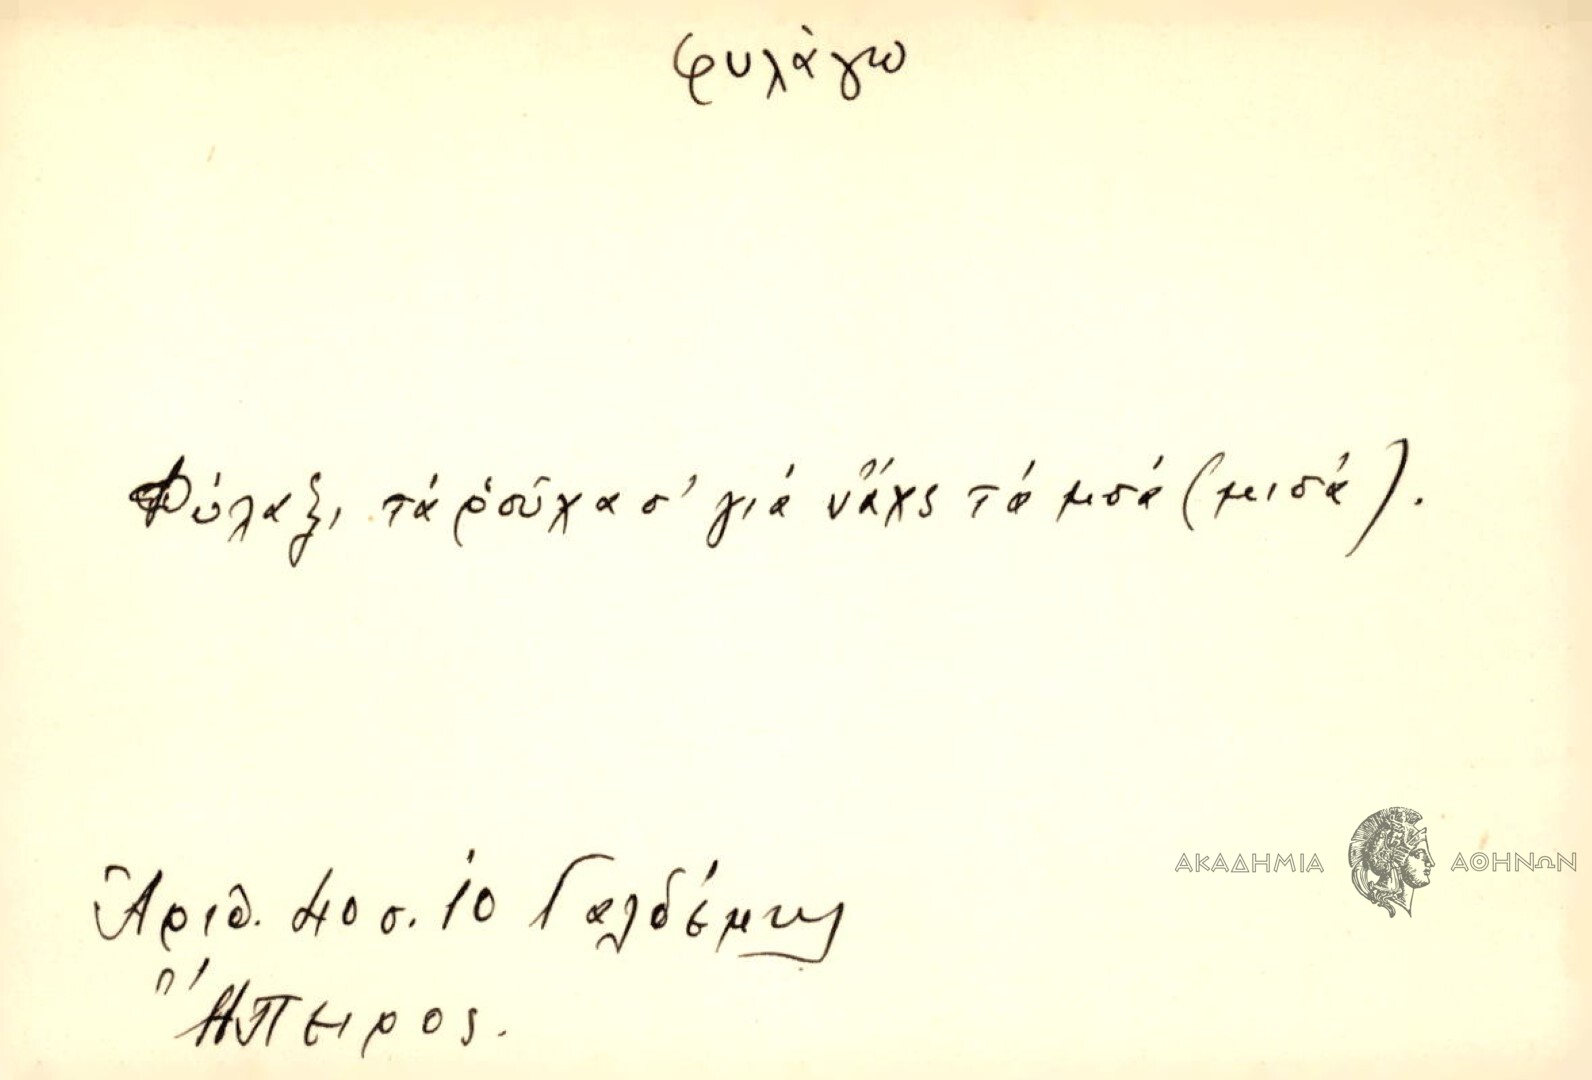 φυλάγω
Φύλαξι τά ροῦχα σ' γιά νἄχς τά μσά (μισά).
ΑΚΑΔΗΜΙΑ ΑΘΗΝΩΝ
Ἀριθ. 40 σ. 10 Γαλδέμης
Ἤπειρος.